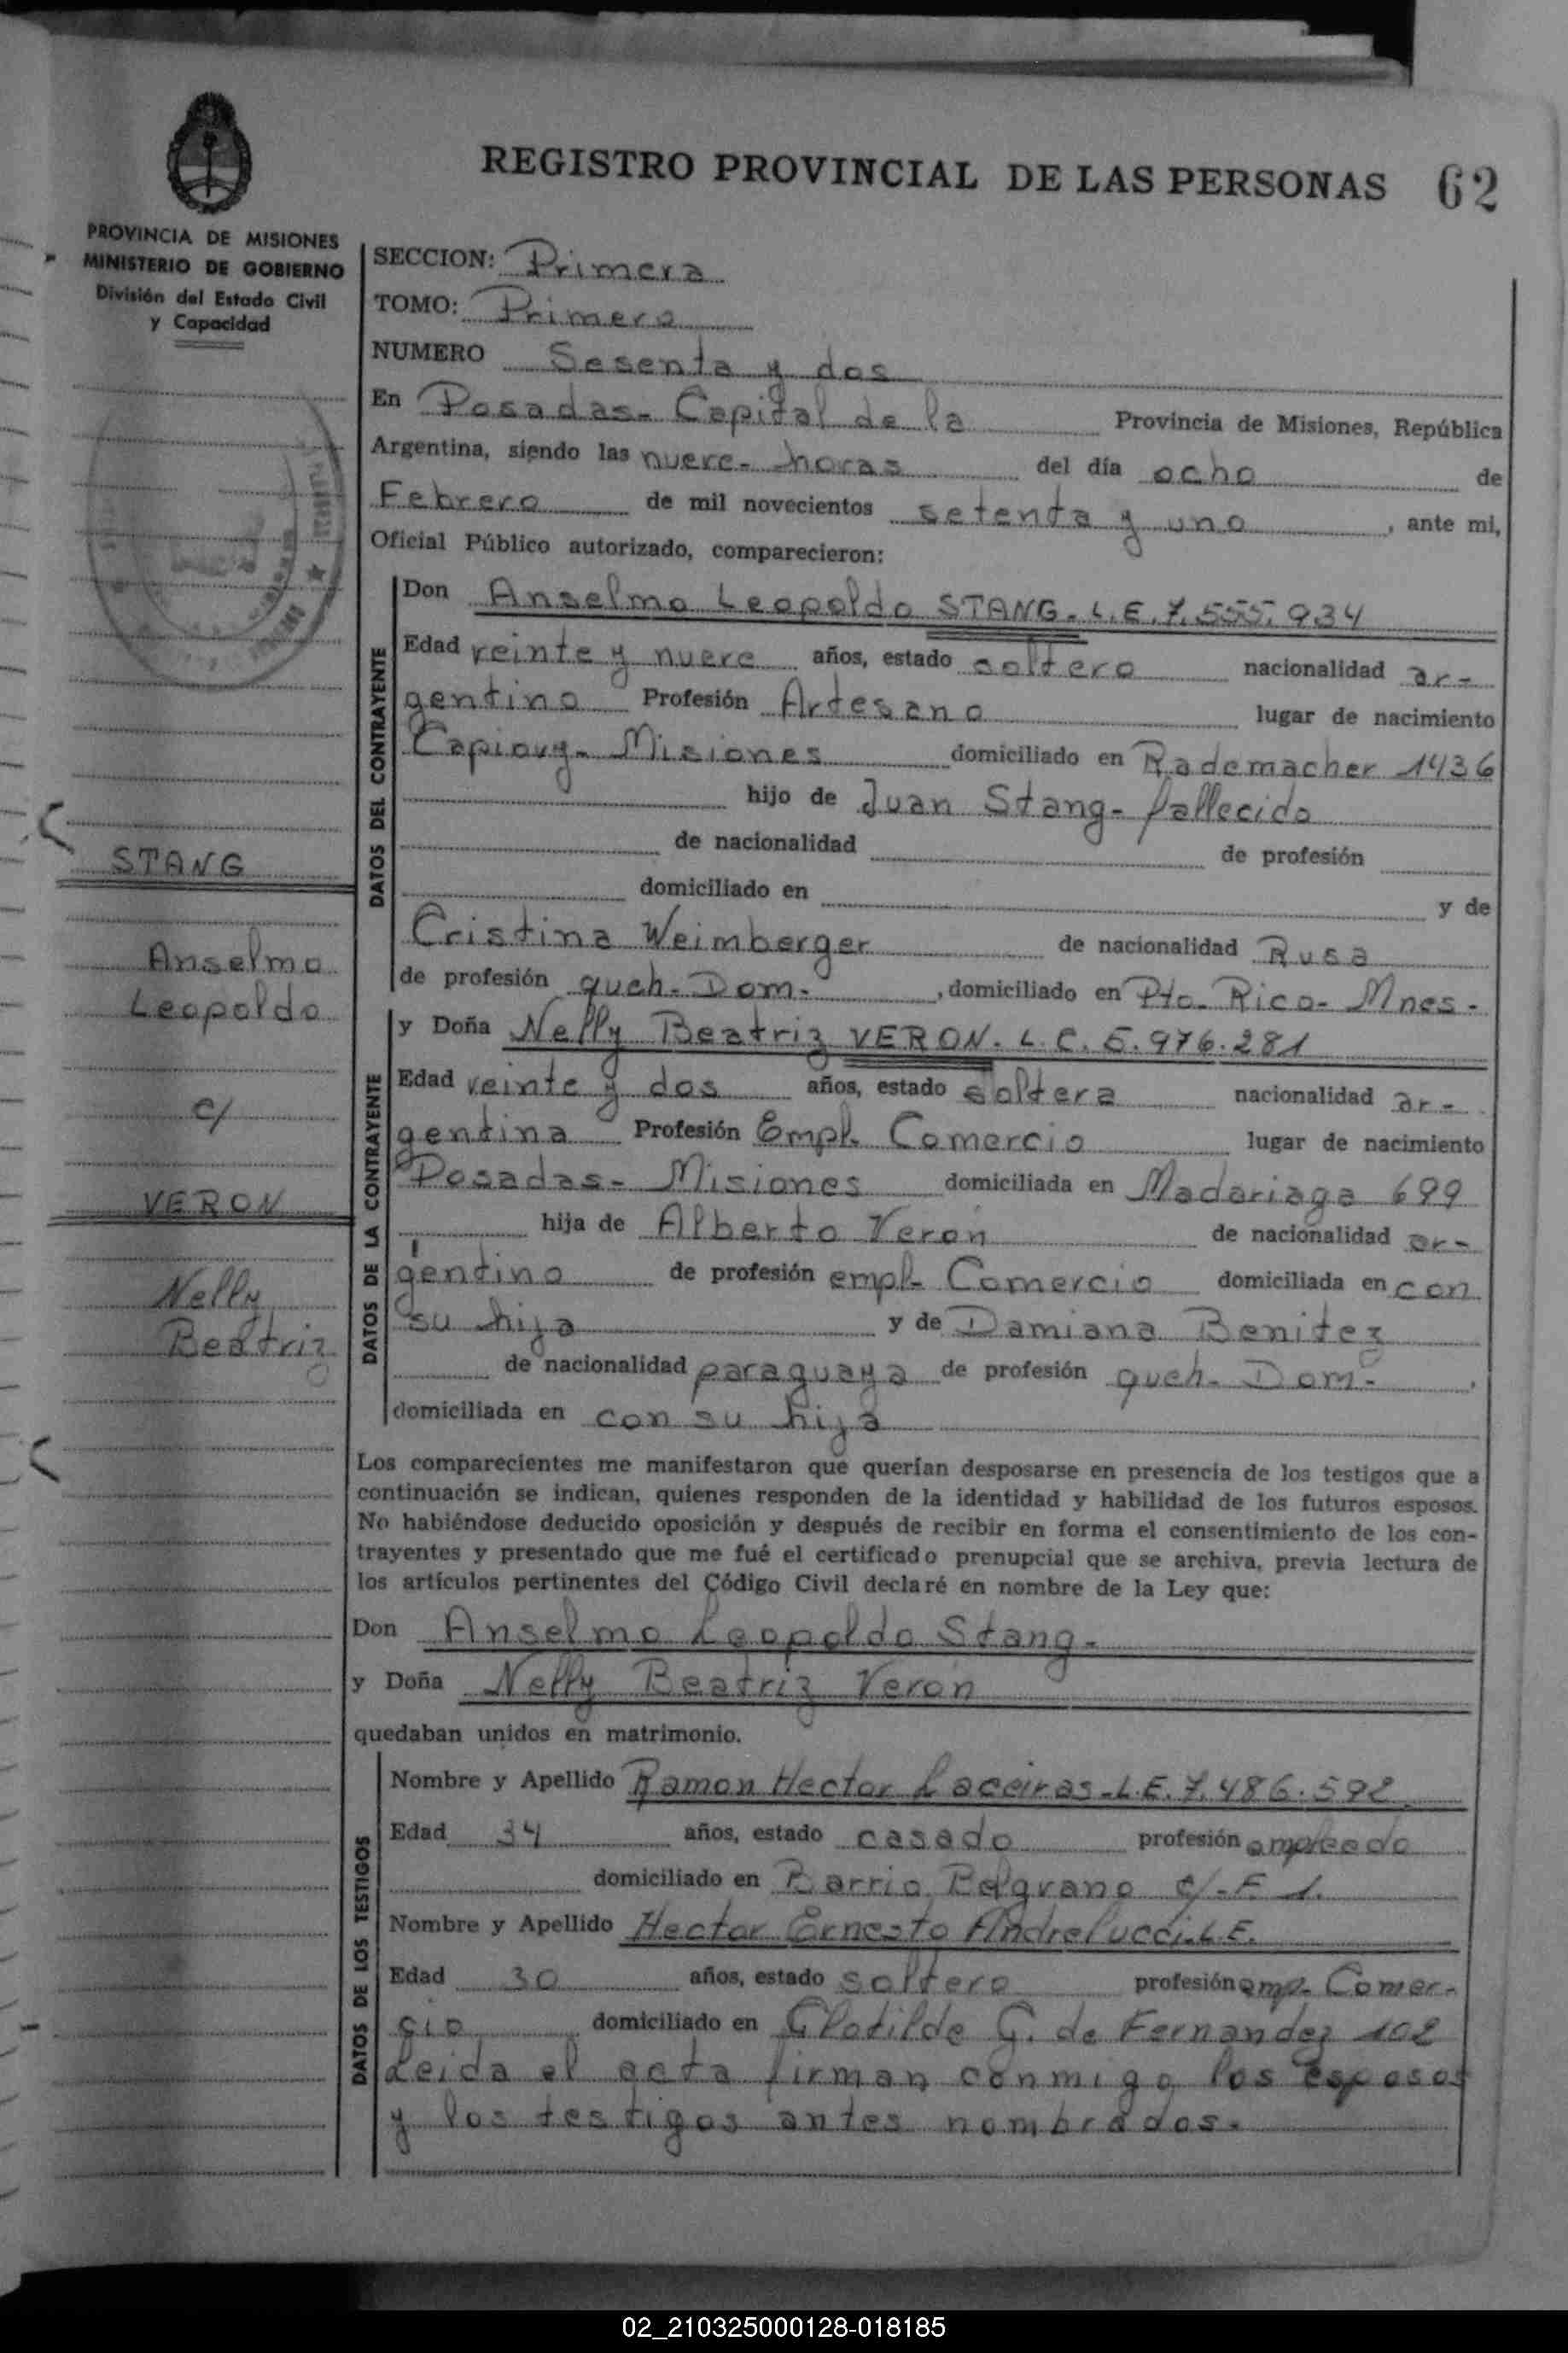 REGISTRO PROVINCIAL DE LAS PERSONAS 62
PROVINCIA DE MISIONES
MINISTERIO DE GOBIERNO
División del Estado Civil
y Capacidad
STANG
Anselmo
Leopoldo
c/
VERON
Nelly
Beatriz
SECCION: Primera
TOMO: Primero
NUMERO Sesenta y dos
En Posadas- Capital de la Provincia de Misiones, República
Argentina, siendo las nueve- horas del día ocho de
Febrero de mil novecientos setenta y uno, ante mi,
Oficial Público autorizado, comparecieron:
DATOS DEL CONTRAYENTE
Don Anselmo Leopoldo STANG- L.E. 7.555.934
Edad veinte y nueve años, estado soltero nacionalidad ar-
gentino Profesión Artesano lugar de nacimiento
Capiovy- Misiones domiciliado en Rademacher 1436
hijo de Juan Stang- fallecido
de nacionalidad de profesión
domiciliado en y de
Cristina Weimberger de nacionalidad Rusa
de profesión queh- Dom-, domiciliado en Pto- Rico- Mnes-
DATOS DE LA CONTRAYENTE
y Doña Nelly Beatriz VERON- L.C. 5.976.281
Edad veinte y dos años, estado soltera nacionalidad ar-
gentina Profesión Empl. Comercio lugar de nacimiento
Posadas- Misiones domiciliada en Madariaga 699
hija de Alberto Verón de nacionalidad ar-
gentino de profesión empl- Comercio domiciliada en con
su hija y de Damiana Benitez
de nacionalidad paraguaya de profesión queh- Dom-,
domiciliada en con su hija
Los comparecientes me manifestaron que querían desposarse en presencia de los testigos que a
continuación se indican, quienes responden de la identidad y habilidad de los futuros esposos.
No habiéndose deducido oposición y después de recibir en forma el consentimiento de los con-
trayentes y presentado que me fué el certificado prenupcial que se archiva, previa lectura de
los artículos pertinentes del Código Civil declaré en nombre de la Ley que:
Don Anselmo Leopoldo Stang-
y Doña Nelly Beatriz Verón
quedaban unidos en matrimonio.
DATOS DE LOS TESTIGOS
Nombre y Apellido Ramon Hector Laceiras- L.E. 7.486.592
Edad 34 años, estado casado profesión empleado
domiciliado en Barrio Belgrano c/- F 1.
Nombre y Apellido Hector Ernesto Andrelucci- L.E.
Edad 30 años, estado soltero profesión emp- Comer-
cio domiciliado en Clotilde G. de Fernandez 102
Leida el acta firman conmigo los esposos
y los testigos antes nombrados-
02_210325000128-018185